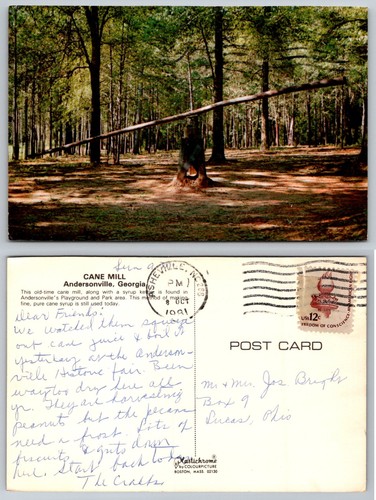 CANE MILL
Andersonville, Georgia
This old-time cane mill, along with a syrup kettle is found in
Andersonville's Playground and Park area. This method of making
fine, pure cane syrup is still used today.
ASHEVILLE, NC
PM
OCT
1981
USA 12c
FREEDOM OF CONSCIENCE
POST CARD
Sun
Dear Friends:
We watched them squeeze
out cane juice & boil it
yesterday at the Anderson-
ville Historic Fair. Been
way too dry here all
yr. They are harvesting
peanuts but the pecans
need a frost. Lots of
biscuits & grits down
here. Start back
The
Mr & Mrs Jos Bright
Box 9
Lucas, Ohio
Plastichrome
By COLOURPICTURE
BOSTON, MASS 02130